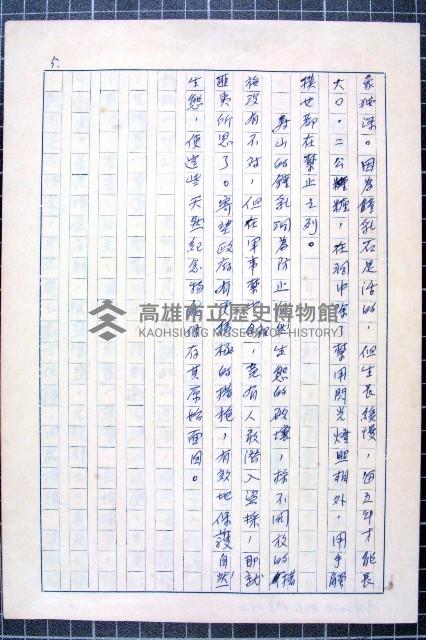 5.
象極深。因為鐘乳石是活的,但生長緩慢,每五年才能長
大〇.二公糎,在洞中除了禁用閃光燈照相外,用手觸
摸也都在禁止之列。
壽山的鐘乳洞為防止其生態的破壞,採不開放的措
施沒有不對,但在軍事禁地內,竟有人敢潛入盜採,即就
匪夷所思了。寄望政府有更積極的措施,有效地保護自然
生態,使這些天然紀念物永保存其原始面目。
高雄市立歷史博物館
KAOHSIUNG MUSEUM OF HISTORY